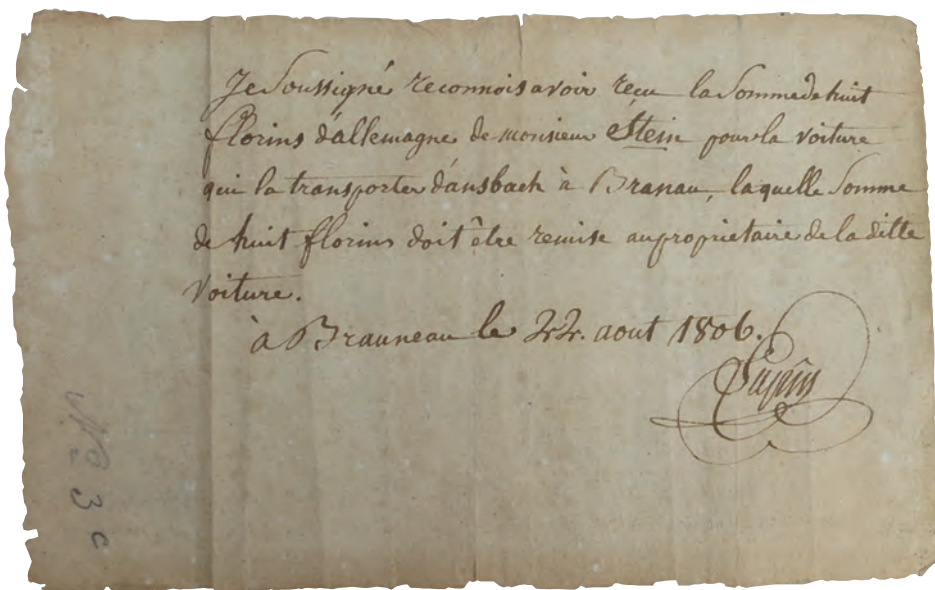 Je Soussigné reconnois avoir reçu la Somme de huit
florins d'allemagne de monsieur Stein pour la voiture
qui la transporter d'ansbach à Branau, laquelle Somme
de huit florins doit être remise au proprietaire de la ditte
voiture.
à Brauneau le 22. aout 1806.
No 3 c